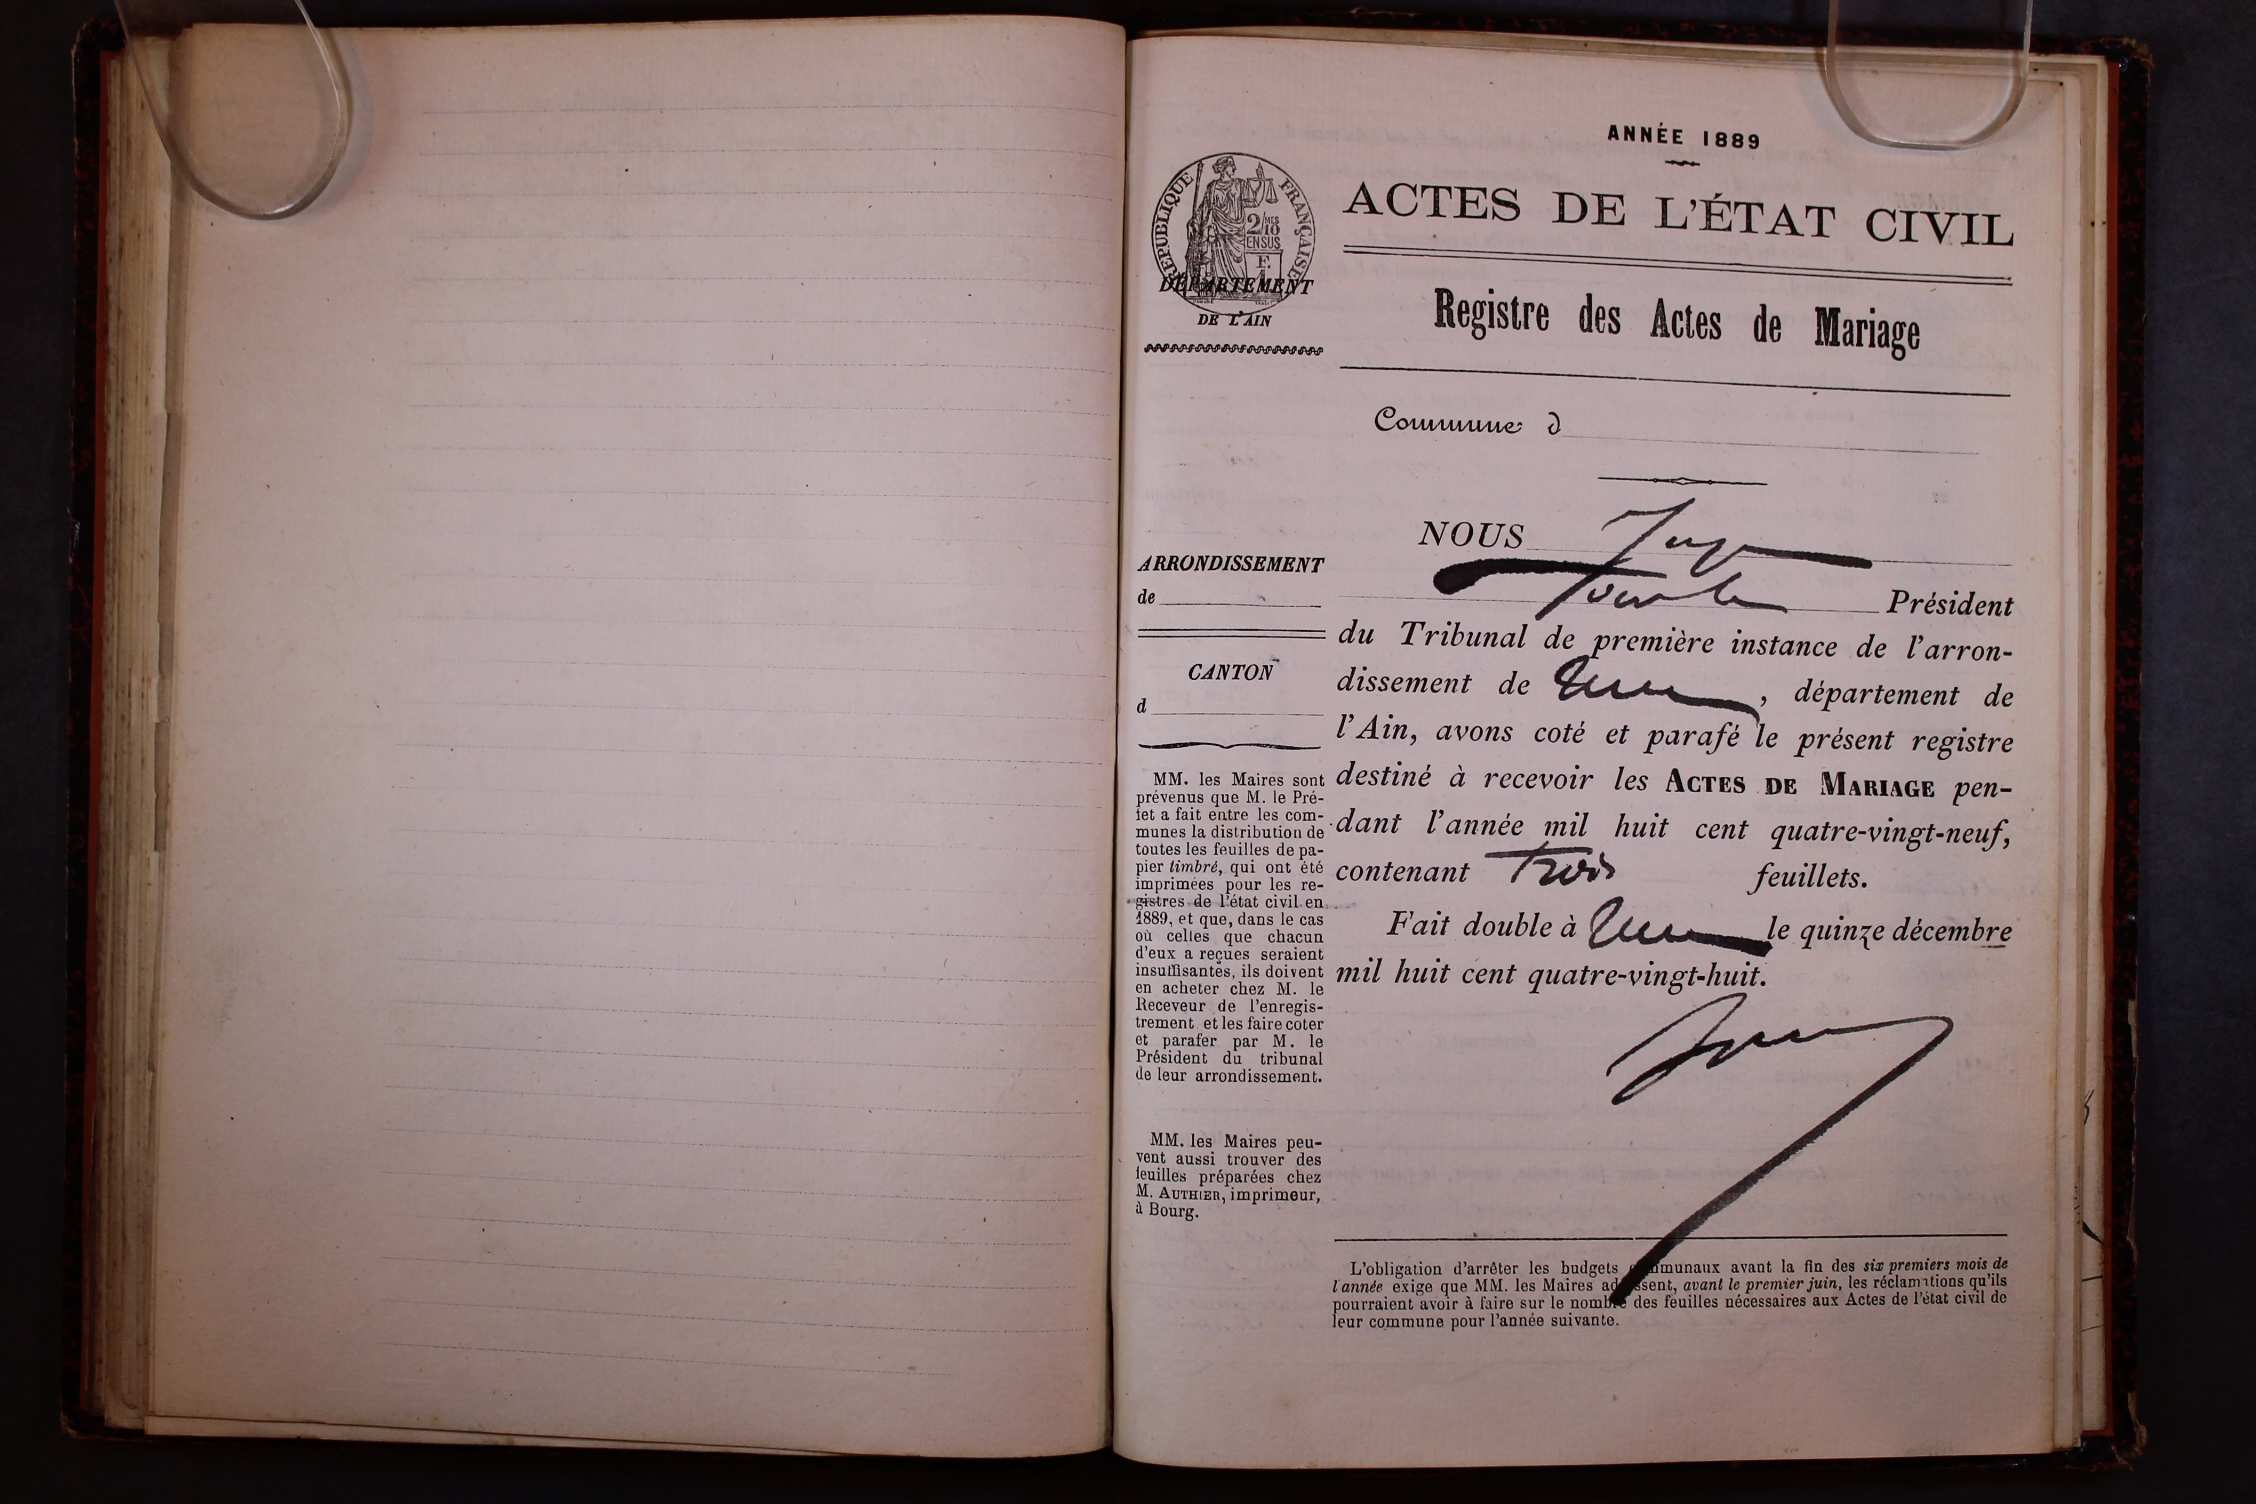 ANNÉE 1889
RÉPUBLIQUE FRANÇAISE
2/10 MES
EN SUS
F.
1
DÉPARTEMENT
DE L'AIN
ACTES DE L'ÉTAT CIVIL
Registre des Actes de Mariage
Commune d
ARRONDISSEMENT
de
CANTON
d
MM. les Maires sont
prévenus que M. le Pré-
fet a fait entre les com-
munes la distribution de
toutes les feuilles de pa-
pier timbré, qui ont été
imprimées pour les re-
gistres de l'état civil en
1889, et que, dans le cas
où celles que chacun
d'eux a reçues seraient
insuffisantes, ils doivent
en acheter chez M. le
Receveur de l'enregis-
trement et les faire coter
et parafer par M. le
Président du tribunal
de leur arrondissement.
MM. les Maires peu-
vent aussi trouver des
feuilles préparées chez
M. AUTHIER, imprimeur,
à Bourg.
NOUS Juge
Président
du Tribunal de première instance de l'arron-
dissement de , département de
l'Ain, avons coté et parafé le présent registre
destiné à recevoir les ACTES DE MARIAGE pen-
dant l'année mil huit cent quatre-vingt-neuf,
contenant trois feuillets.
Fait double à le quinze décembre
mil huit cent quatre-vingt-huit.
L'obligation d'arrêter les budgets communaux avant la fin des six premiers mois de
l'année exige que MM. les Maires adressent, avant le premier juin, les réclamations qu'ils
pourraient avoir à faire sur le nombre des feuilles nécessaires aux Actes de l'état civil de
leur commune pour l'année suivante.